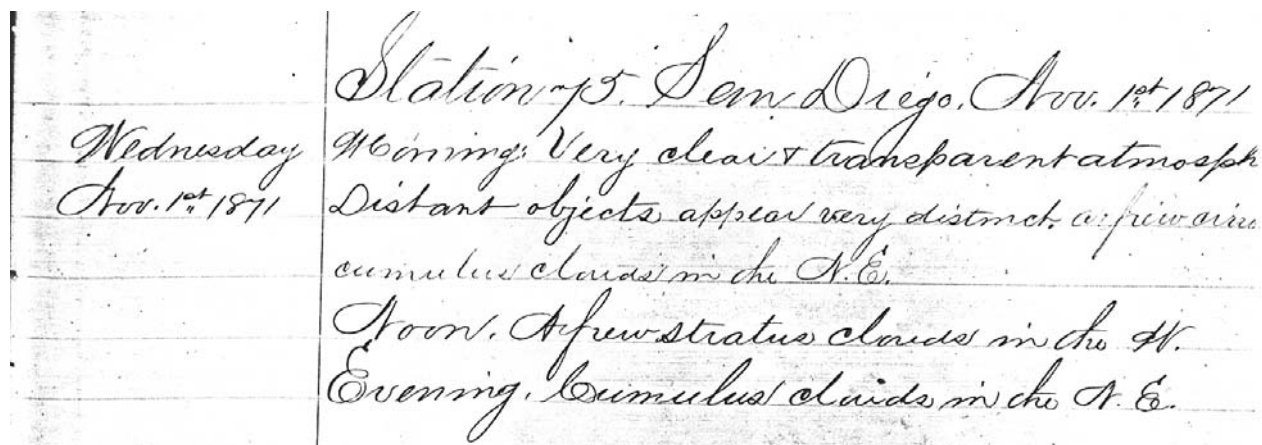 Station 75. San Diego. Nov. 1st 1871
Wednesday
Morning: Very clear & transparent atmosph
Nov. 1st 1871
Distant objects appear very distinct. a few cirro
cumulus clouds in the N.E.
Noon. A few stratus clouds in the W.
Evening. Cumulus clouds in the N.E.